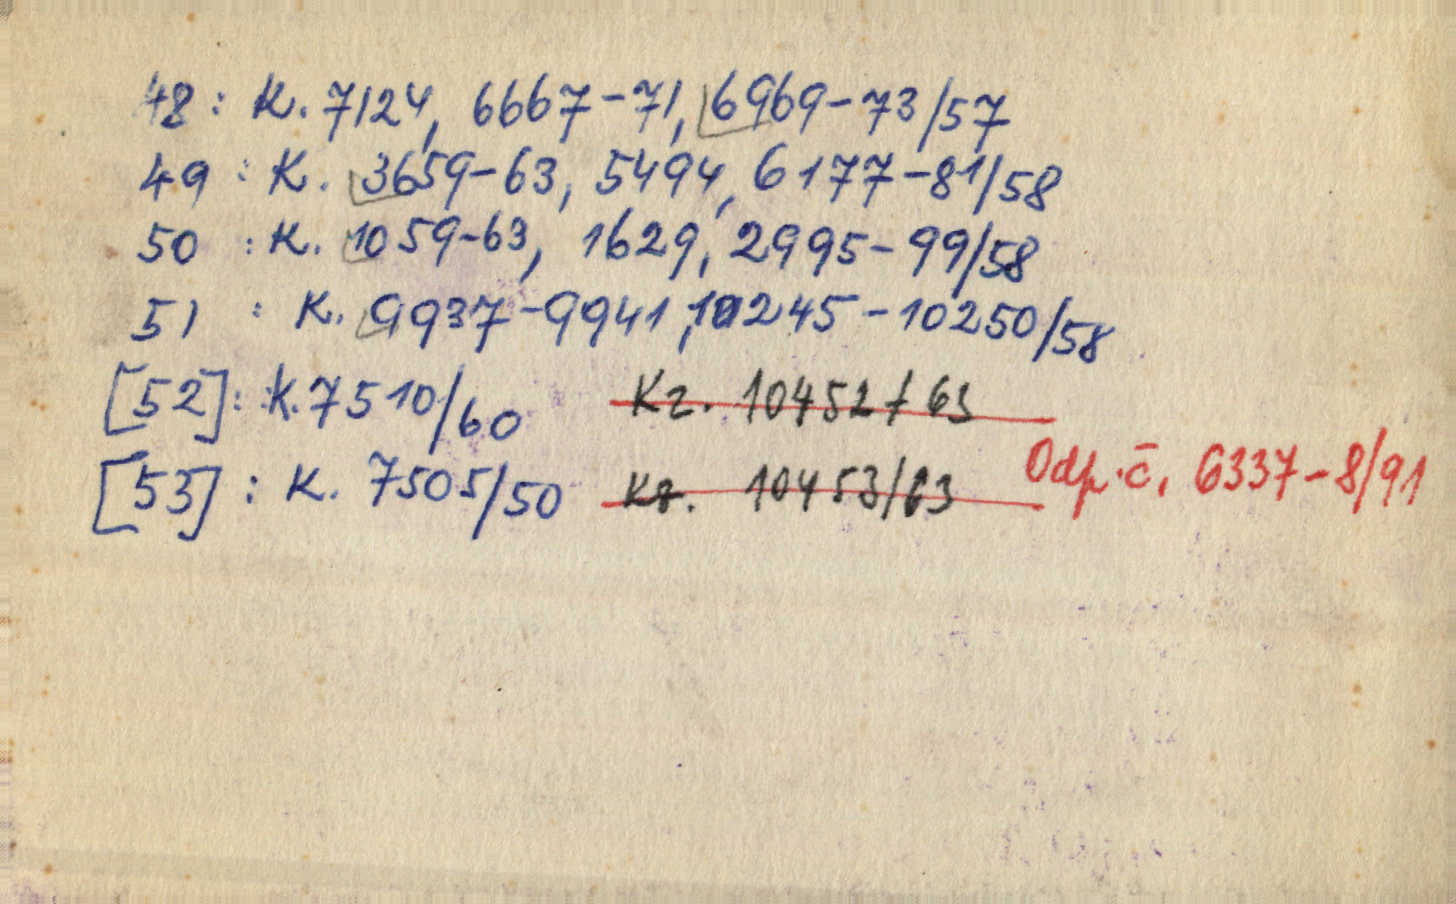 48 : K. 7124, 6667-71, 6969-73/57
49 : K. 3659-63, 5494, 6177-81/58
50 : K. 1059-63, 1629, 2995-99/58
51 : K. 9937-9941, 10245-10250/58
[52] : K. 7510/60 Kr. 10452/63
[53] : K. 7505/50 Kr. 10453/63 Odp. č. 6337-8/91